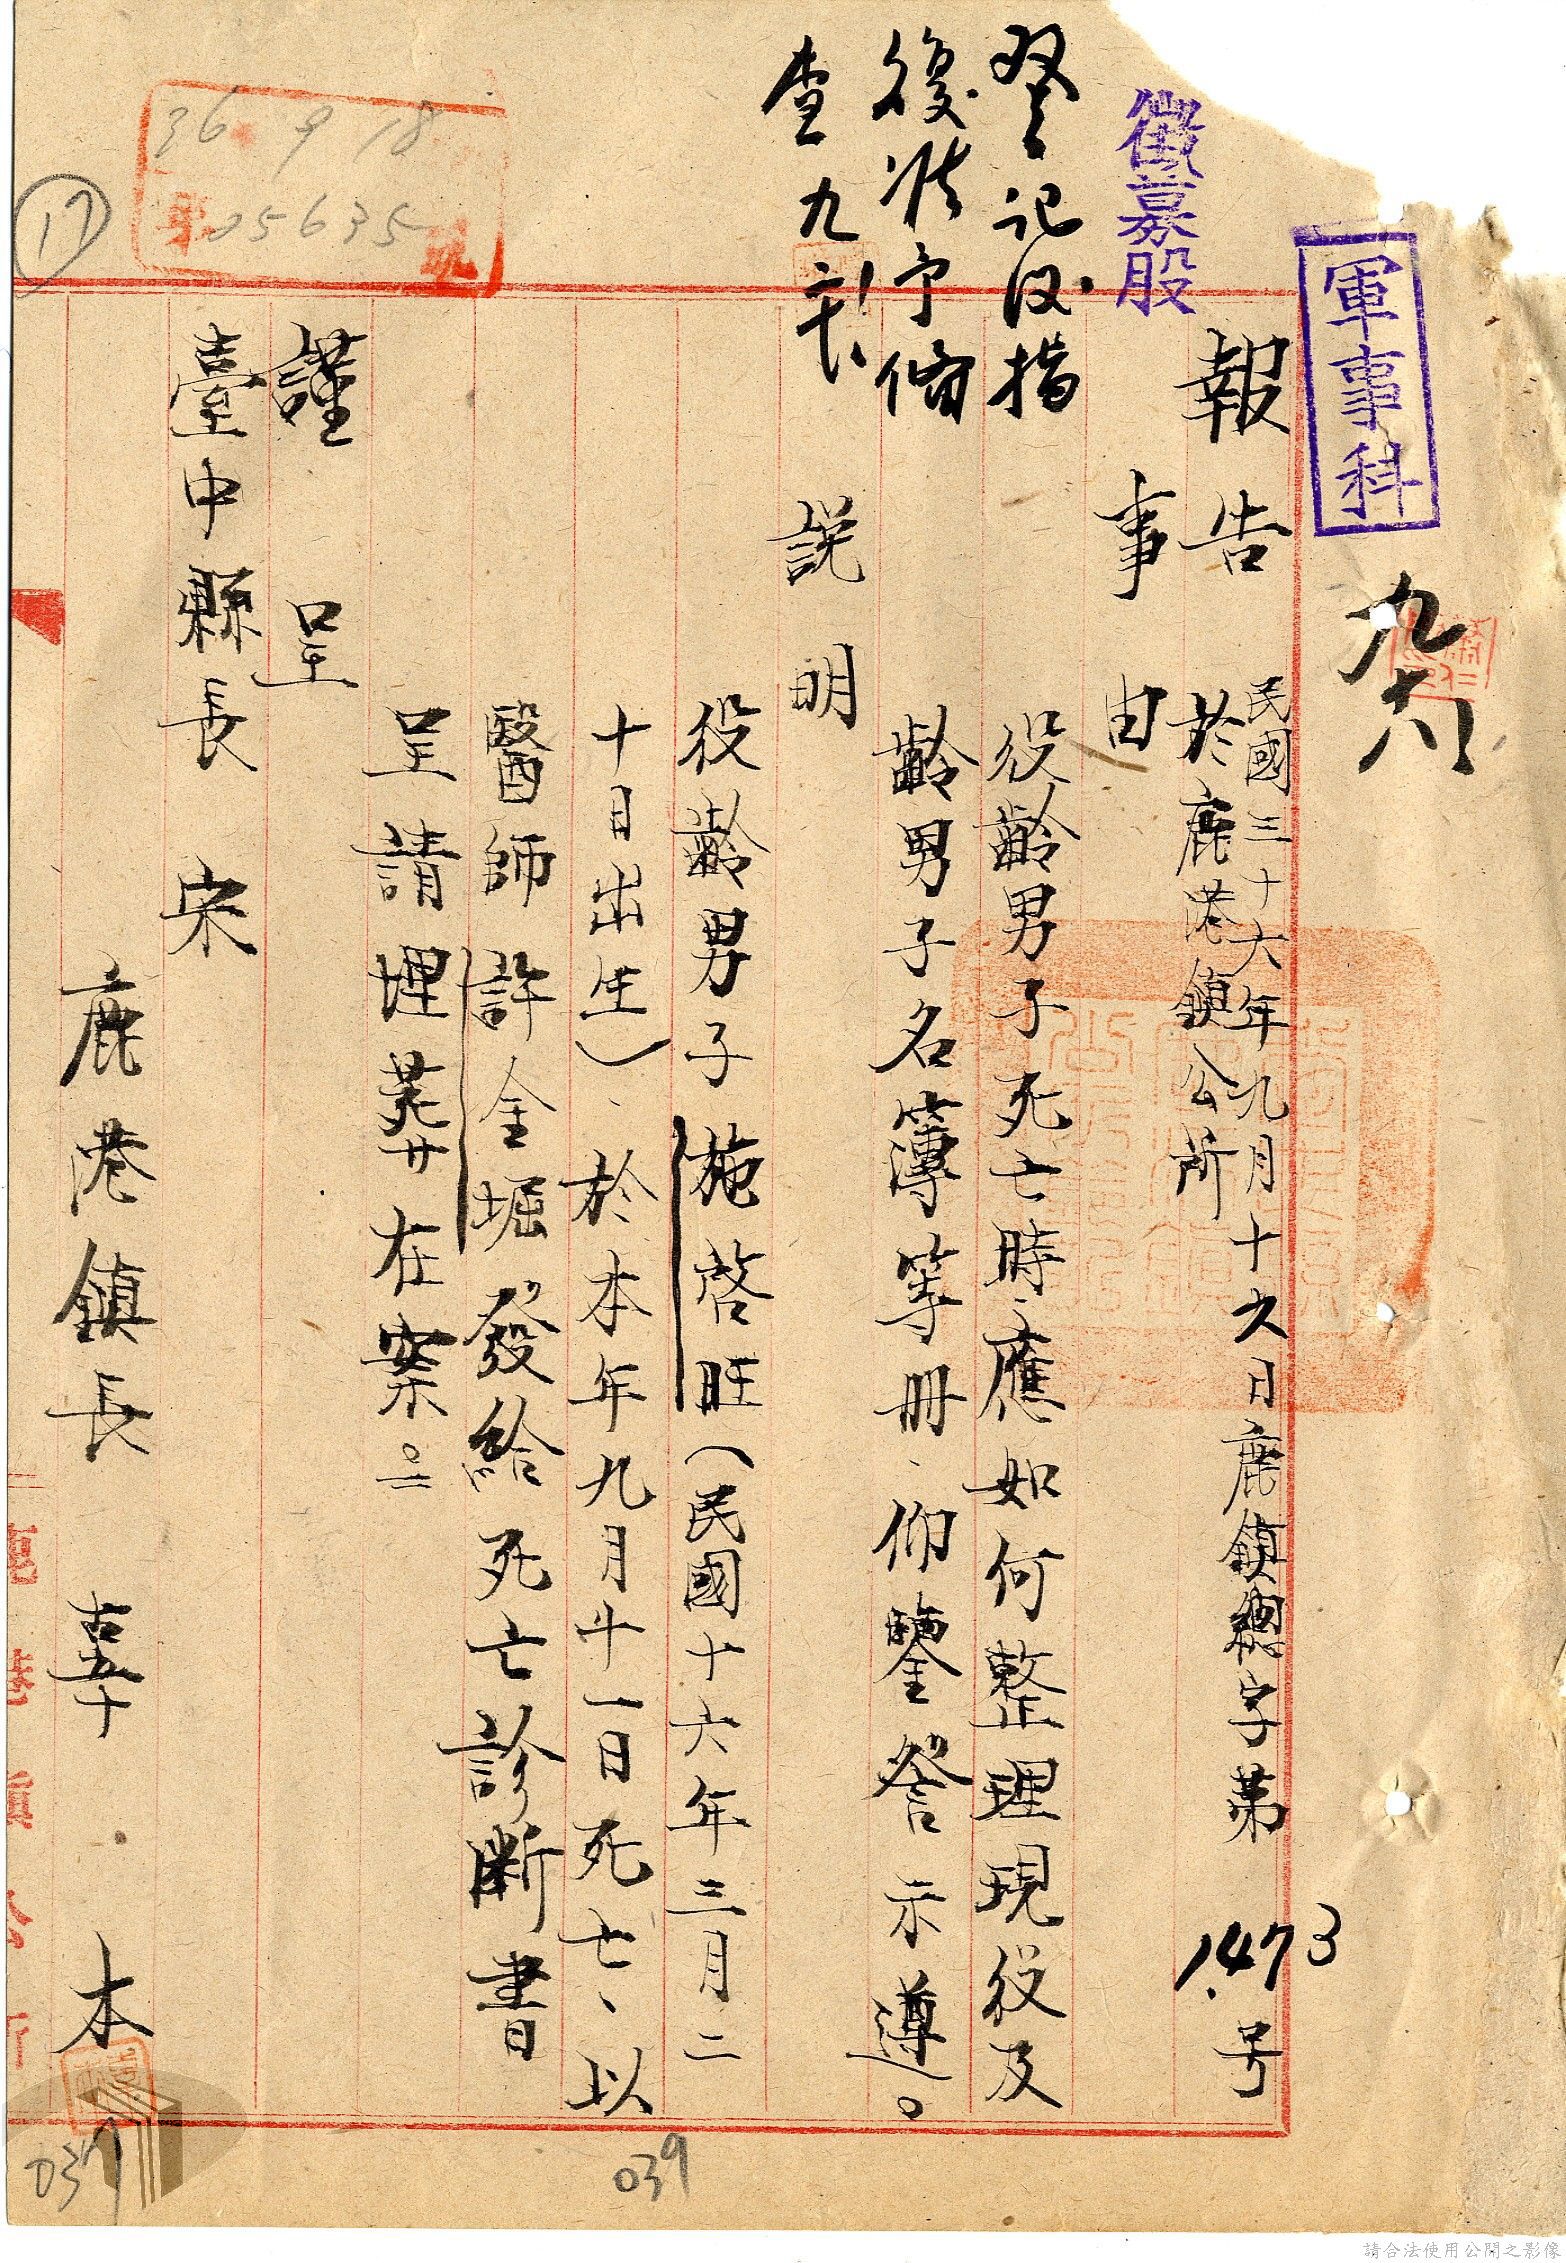 軍事科
徵募股
登記後指
復准予備
查九
報告
民國三十六年九月十六日鹿鎮總字第1473号
於鹿港鎮公所
事由
役齡男子死亡時、應如何整理現役及
齡男子名簿等冊、仰鑒詧示遵。
説明
役齡男子施啓旺(民國十六年三月二
十日出生)、於本年九月十一日死亡、以
醫師許金堀發給死亡診斷書
呈請埋葬在案。
謹呈
臺中縣長宋
鹿港鎮長辜本
36 9 18
05635
17
037
039
請合法使用公開之影像